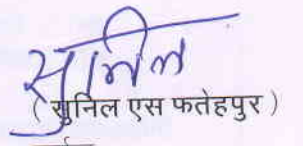 सुनिल
( सुनिल एस फतेहपुर )